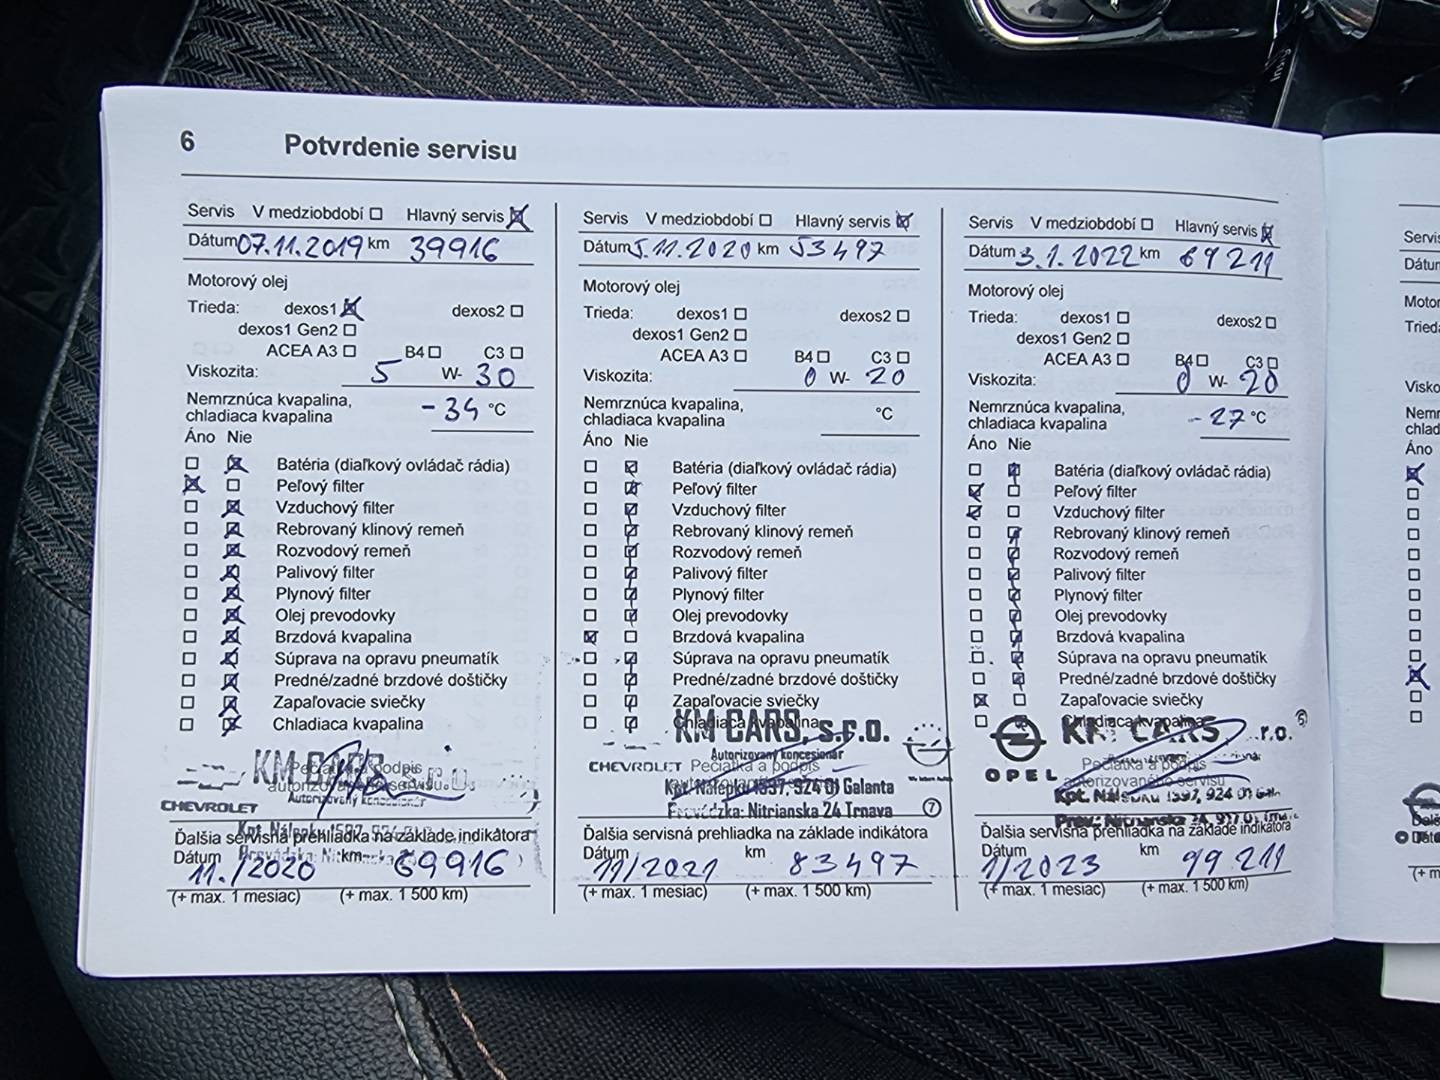 6 Potvrdenie servisu
Servis V medziobdobí Hlavný servis
Dátum 07.11.2019 km 39916
Motorový olej
Trieda: dexos1 dexos2
dexos1 Gen2
ACEA A3 B4 C3
Viskozita: 5 W- 30
Nemrznúca kvapalina,
chladiaca kvapalina -34 °C
Áno Nie
Batéria (diaľkový ovládač rádia)
Peľový filter
Vzduchový filter
Rebrovaný klinový remeň
Rozvodový remeň
Palivový filter
Plynový filter
Olej prevodovky
Brzdová kvapalina
Súprava na opravu pneumatík
Predné/zadné brzdové doštičky
Zapaľovacie sviečky
Chladiaca kvapalina
KM CARS s.r.o.
Pečiatka a podpis
autorizovaného servisu
Autorizovaný koncesionár
CHEVROLET
Ďalšia servisná prehliadka na základe indikátora
Dátum km
11./2020 69916
(+ max. 1 mesiac) (+ max. 1 500 km)
Servis V medziobdobí Hlavný servis
Dátum 5.11.2020 km 53497
Motorový olej
Trieda: dexos1 dexos2
dexos1 Gen2
ACEA A3 B4 C3
Viskozita: 0 W- 20
Nemrznúca kvapalina,
chladiaca kvapalina °C
Áno Nie
Batéria (diaľkový ovládač rádia)
Peľový filter
Vzduchový filter
Rebrovaný klinový remeň
Rozvodový remeň
Palivový filter
Plynový filter
Olej prevodovky
Brzdová kvapalina
Súprava na opravu pneumatík
Predné/zadné brzdové doštičky
Zapaľovacie sviečky
Chladiaca kvapalina
KM CARS, s.r.o.
Autorizovaný koncesionár
CHEVROLET Pečiatka a podpis
Kpt. Nálepku 1597, 924 01 Galanta
Prevádzka: Nitrianska 24 Trnava 7
Ďalšia servisná prehliadka na základe indikátora
Dátum km
11/2021 83497
(+ max. 1 mesiac) (+ max. 1 500 km)
Servis V medziobdobí Hlavný servis
Dátum 3.1.2022 km 69211
Motorový olej
Trieda: dexos1 dexos2
dexos1 Gen2
ACEA A3 B4 C3
Viskozita: 0 W- 20
Nemrznúca kvapalina,
chladiaca kvapalina -27 °C
Áno Nie
Batéria (diaľkový ovládač rádia)
Peľový filter
Vzduchový filter
Rebrovaný klinový remeň
Rozvodový remeň
Palivový filter
Plynový filter
Olej prevodovky
Brzdová kvapalina
Súprava na opravu pneumatík
Predné/zadné brzdové doštičky
Zapaľovacie sviečky
Chladiaca kvapalina
KM CARS r.o.
OPEL Pečiatka a podpis
autorizovaného servisu
Kpt. Nálepku 1597, 924 01
Ďalšia servisná prehliadka na základe indikátora
Dátum km
1/2023 99211
(+ max. 1 mesiac) (+ max. 1 500 km)
Áno